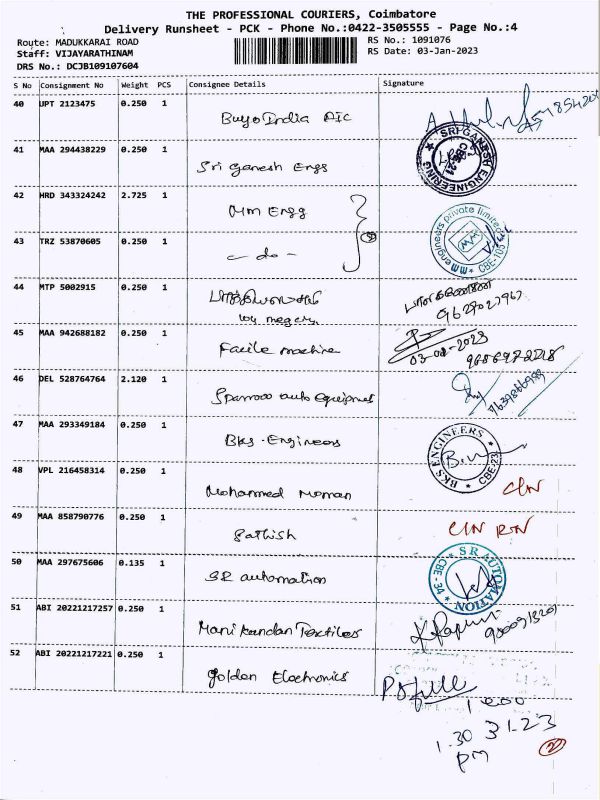 THE PROFESSIONAL COURIERS, Coimbatore
Delivery Runsheet - PCK - Phone No.:0422-3505555 - Page No.:4
Route: MADUKKARAI ROAD
RS No.: 1091076
Staff: VIJAYARATHINAM
RS Date: 03-Jan-2023
DRS No.: DCJB109107604
S No Consignment No Weight PCS Consignee Details Signature
40 UPT 2123475 0.250 1
Buyo India AIC
41 MAA 294438229 0.250 1
Sri Ganesh Engg
SRI GANESH ENGINEERING
CBE-21
42 HRD 343324242 2.725 1
MM Engg
mm engineers private limited
CBE-105
43 TRZ 53870605 0.250 1
- do -
44 MTP 5002915 0.250 1
45 MAA 942688182 0.250 1
Facile machine
03-01-2023
46 DEL 528764764 2.120 1
Sparrow auto Equipmet
47 MAA 293349184 0.250 1
BKS-Engineers
BKS ENGINEERS
CBE-23
48 VPL 216458314 0.250 1
Mohammed Noman
C/N
49 MAA 858790776 0.250 1
Sathish
C/N R/N
50 MAA 297675606 0.135 1
SR automation
S R AUTOMATION
CBE - 34
51 ABI 20221217257 0.250 1
Manikandan Textiles
52 ABI 20221217221 0.250 1
Golden Electronics
3.1.23
1.30
PM
2